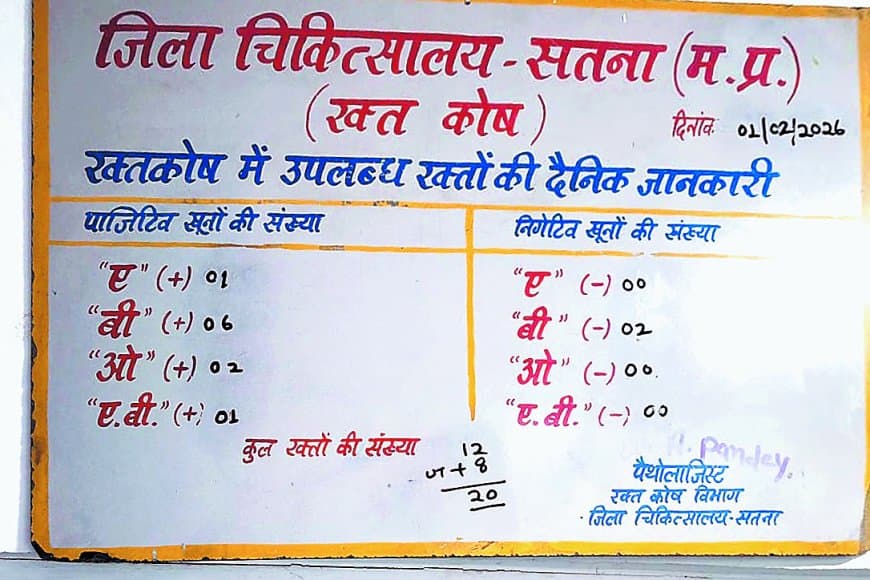 जिला चिकित्सालय - सतना (म.प्र.)
(रक्त कोष)
दिनांक 01/02/2026
रक्तकोष में उपलब्ध रक्तों की दैनिक जानकारी
पाजिटिव खूनों की संख्या
"ए" (+) 01
"बी" (+) 06
"ओ" (+) 02
"ए.बी." (+) 01
निगेटिव खूनों की संख्या
"ए" (-) 00
"बी" (-) 02
"ओ" (-) 00
"ए.बी." (-) 00
कुल रक्तों की संख्या
12
+ 8
20
Pandey.
पैथोलाजिस्ट
रक्त कोष विभाग
जिला चिकित्सालय-सतना